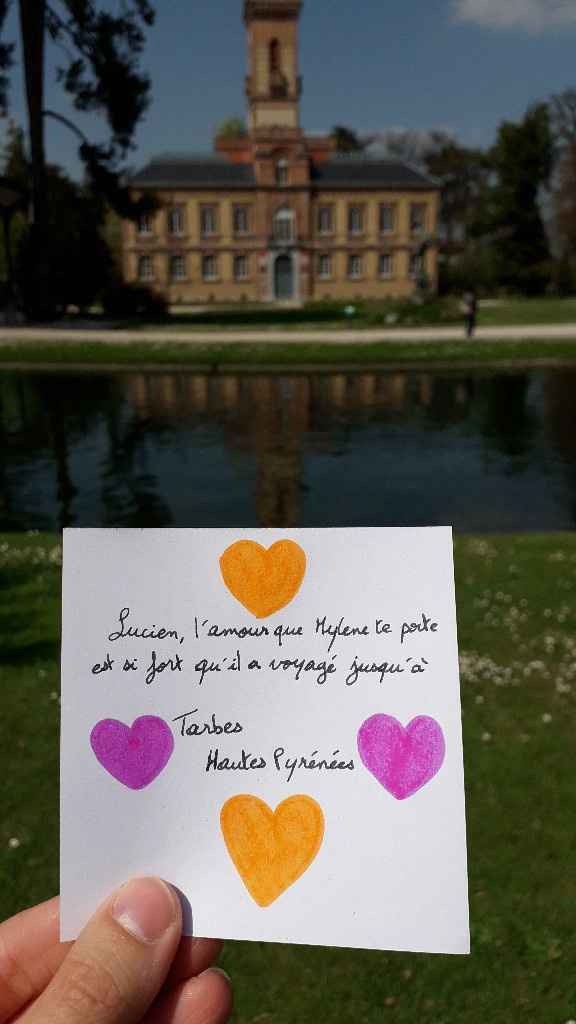 Lucien, l'amour que Mylene te porte
est si fort qu'il a voyagé jusqu'à
Tarbes
Hautes Pyrénées